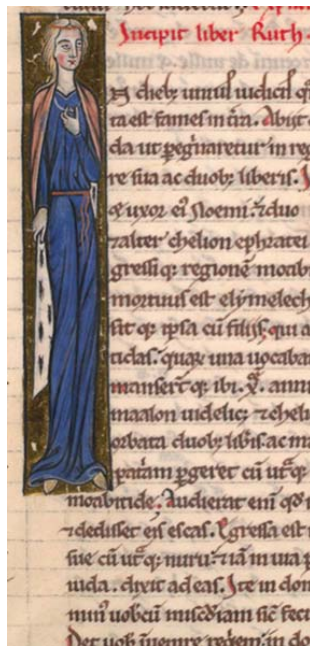 Incipit liber Ruth.
N dieb; unius iudicis q
ta est fames in t̄ra. Abiit
da ut p̲egͥnaretur in reg
re sua ac duob; liberis.
q̲ uxor ei᷒ Noemi. ⁊ duo
⁊ alter chelion ephratei
gressi q; regionē moab
mortuus est elymelech
sit q; ipsa cū filiis, qui a
tidas. quaꝝ una uocaba
manserūt q; ibi. X. anni
maalon uidelic; ⁊ cheli
orbata duob; lib̄is. ac ma
patͥam ꝑgeret cū ut̓q;
moabitide; Audierat em̄ qd̓
⁊ dedisset eis escas. Egressa est
sue cū ut̓q; nuru. ⁊ iā in uia p
iuda. dixit ad eas. Ite in dom
min̄ uobcū misc̄diam sic̄ feci
Det uob̄ inuenire requiem in do